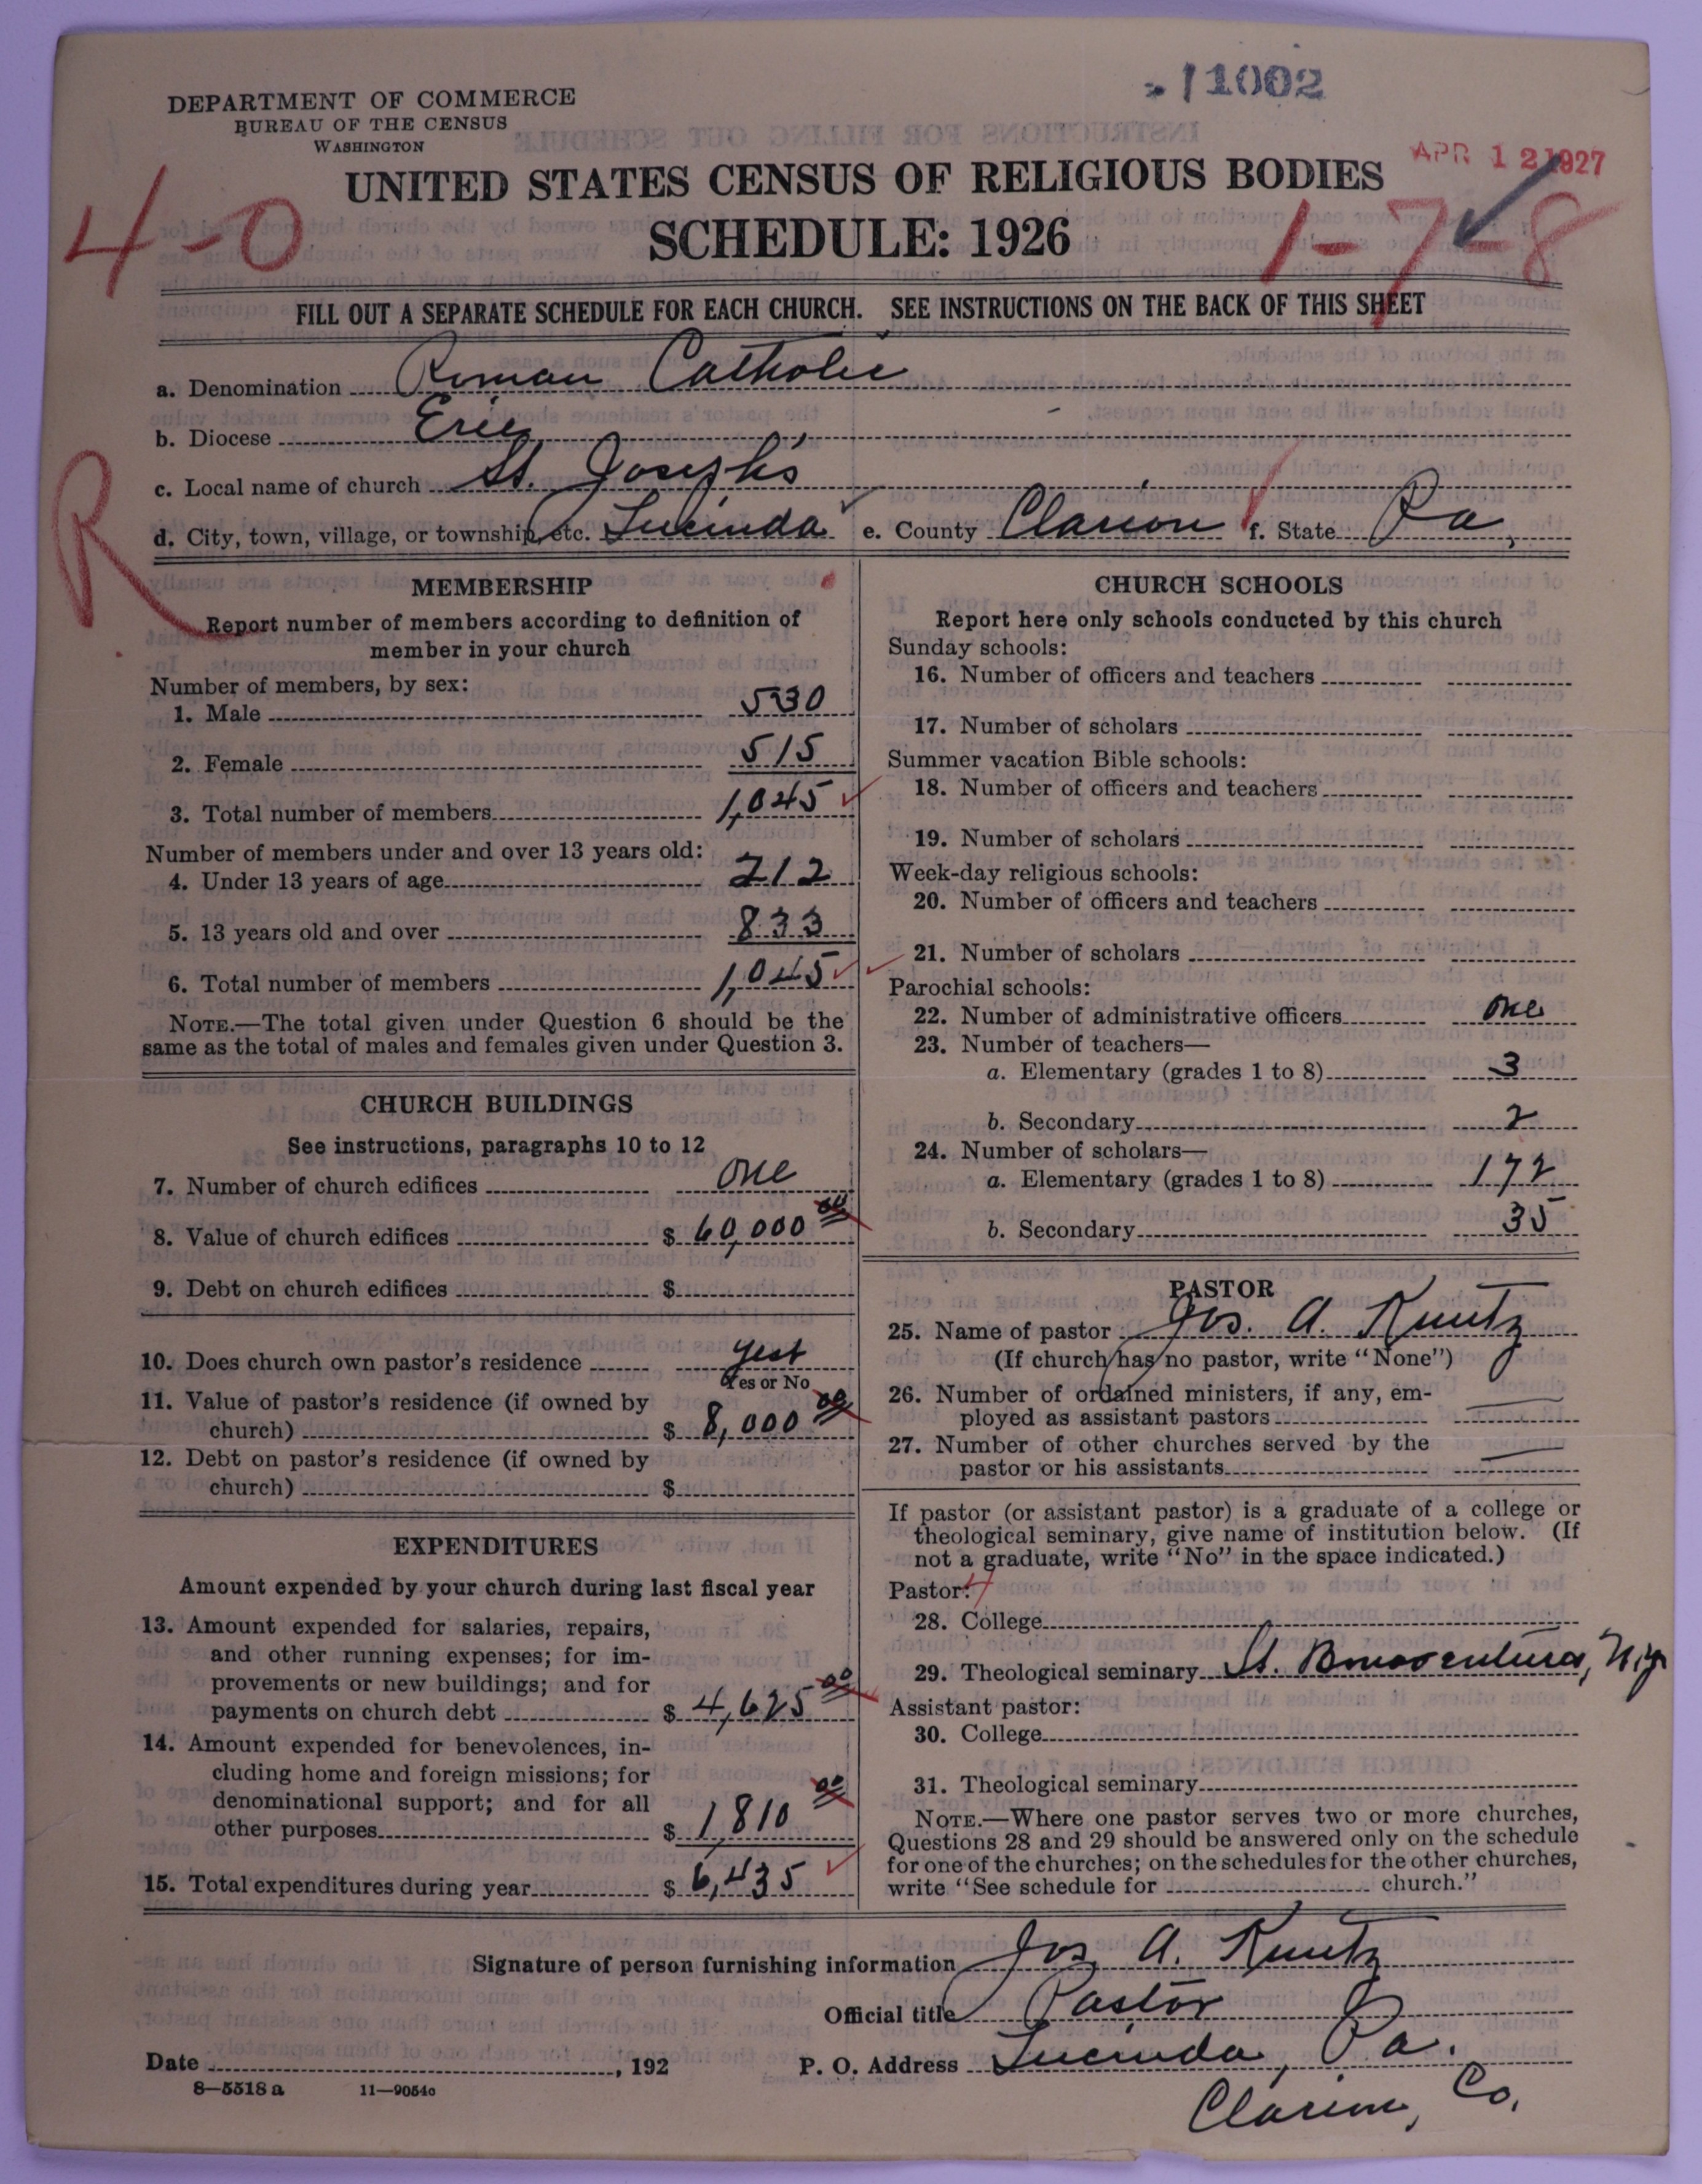 11002
DEPARTMENT OF COMMERCE
BUREAU OF THE CENSUS
WASHINGTON
APR 12 1927
UNITED STATES CENSUS OF RELIGIOUS BODIES
SCHEDULE: 1926
4-0
1-7-8
FILL OUT A SEPARATE SCHEDULE FOR EACH CHURCH. SEE INSTRUCTIONS ON THE BACK OF THIS SHEET
a. Denomination Roman Catholic
b. Diocese Erie
c. Local name of church St. Joseph's
R
d. City, town, village, or township, etc. Lucinda e. County Clarion f. State Pa,
MEMBERSHIP
Report number of members according to definition of
member in your church
Number of members, by sex:
1. Male 530
2. Female 515
3. Total number of members 1,045
Number of members under and over 13 years old:
4. Under 13 years of age 212
5. 13 years old and over 833
6. Total number of members 1,045
NOTE.—The total given under Question 6 should be the
same as the total of males and females given under Question 3.
CHURCH BUILDINGS
See instructions, paragraphs 10 to 12
7. Number of church edifices one
8. Value of church edifices $ 60,000 00
9. Debt on church edifices $
10. Does church own pastor's residence yes
Yes or No
11. Value of pastor's residence (if owned by
church) $ 8,000 00
12. Debt on pastor's residence (if owned by
church) $
EXPENDITURES
Amount expended by your church during last fiscal year
13. Amount expended for salaries, repairs,
and other running expenses; for im-
provements or new buildings; and for
payments on church debt $ 4,625 00
14. Amount expended for benevolences, in-
cluding home and foreign missions; for
denominational support; and for all
other purposes $ 1,810 00
15. Total expenditures during year $ 6,435
CHURCH SCHOOLS
Report here only schools conducted by this church
Sunday schools:
16. Number of officers and teachers
17. Number of scholars
Summer vacation Bible schools:
18. Number of officers and teachers
19. Number of scholars
Week-day religious schools:
20. Number of officers and teachers
21. Number of scholars
Parochial schools:
22. Number of administrative officers one
23. Number of teachers—
a. Elementary (grades 1 to 8) 3
b. Secondary 2
24. Number of scholars—
a. Elementary (grades 1 to 8) 172
b. Secondary 35
PASTOR
25. Name of pastor Jos. A. Kuntz
(If church has no pastor, write "None")
26. Number of ordained ministers, if any, em-
ployed as assistant pastors —
27. Number of other churches served by the
pastor or his assistants —
If pastor (or assistant pastor) is a graduate of a college or
theological seminary, give name of institution below. (If
not a graduate, write "No" in the space indicated.)
Pastor:
28. College
29. Theological seminary St. Bonaventura, N.Y.
Assistant pastor:
30. College
31. Theological seminary
NOTE.—Where one pastor serves two or more churches,
Questions 28 and 29 should be answered only on the schedule
for one of the churches; on the schedules for the other churches,
write "See schedule for church."
Signature of person furnishing information Jos. A. Kuntz
Official title Pastor
Date , 192 P. O. Address Lucinda, Pa.
8—5518 a 11—9054c
Clarion, Co.